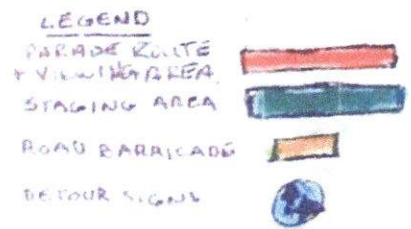 LEGEND
PARADE ROUTE
+ VIEWING AREA
STAGING AREA
ROAD BARRICADE
DETOUR SIGNS